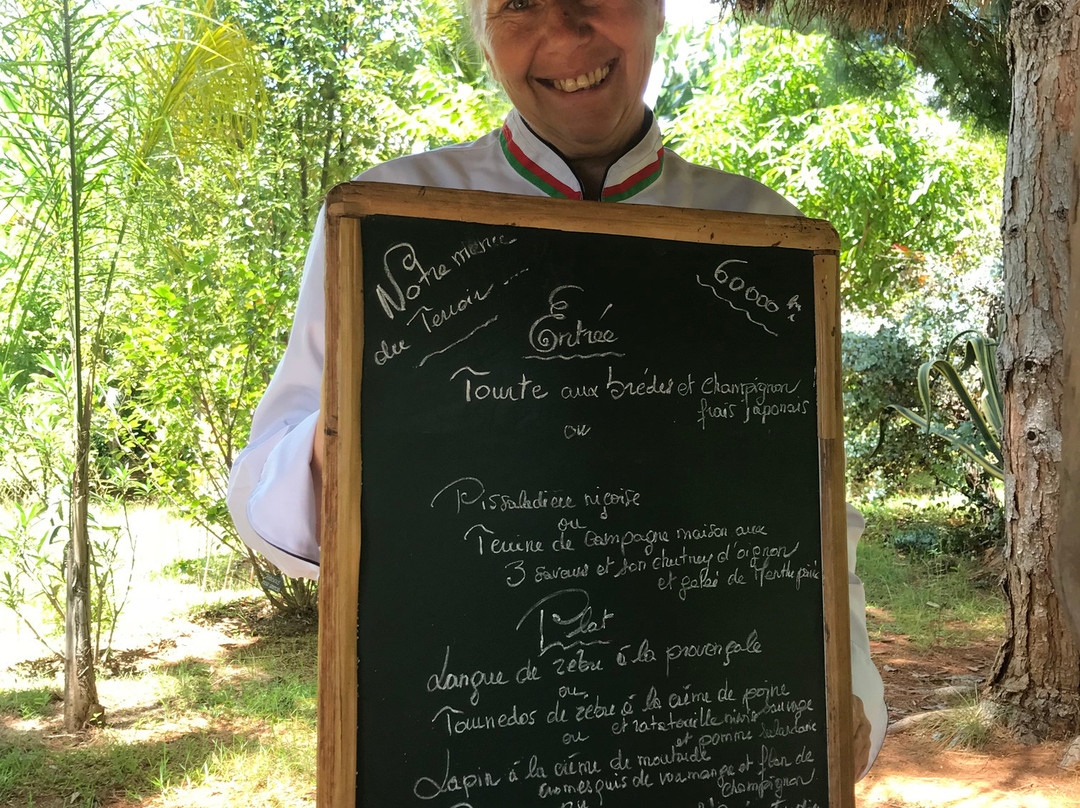 Notre menu
du Terroir ...
60000
Entrée
Tourte aux brédes et Champignon
frais japonais
ou
Pissaladière niçoise
ou
Terrine de Campagne maison aux
3 saveurs et son chutney d'oignon
et gelée de Menthe
Plat
Langue de zébu à la provençale
ou
Tournedos de zébu à la crème de poivre sauvage
ou et ratatouille
et pomme
Lapin à la crème de moutarde
et flan de
Champignon